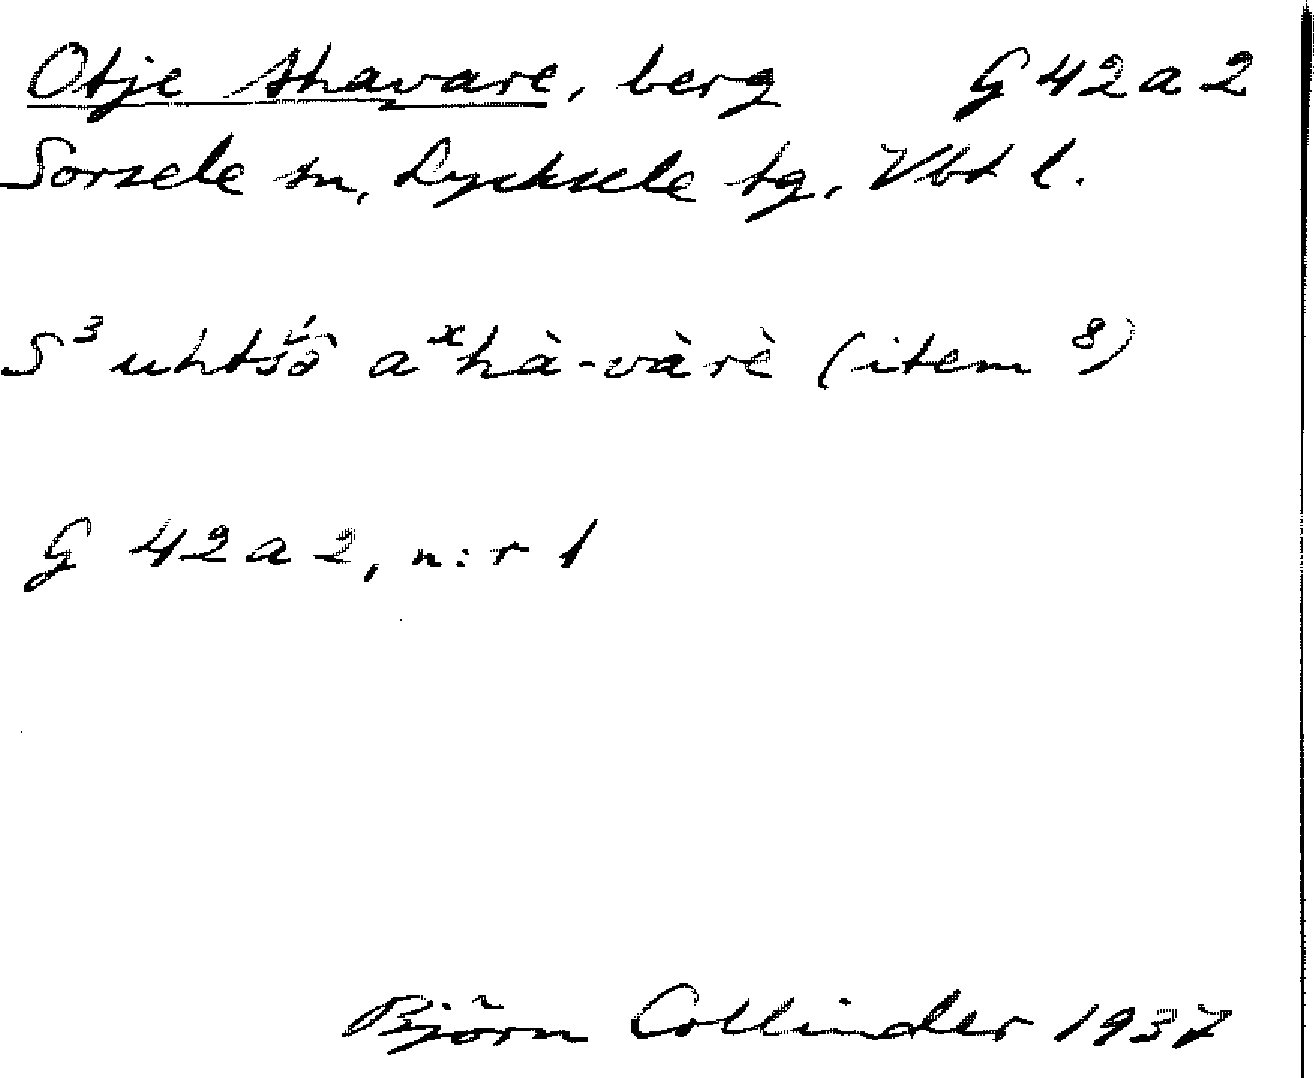 Otje Ahavare, berg G 42 a 2
Sorsele sn, Lycksele tg, Vbt l.
S³ uhtśō aˣhà-vàrè (item ⁸)
G 42 a 2, n:r 1
Björn Collinder 1937